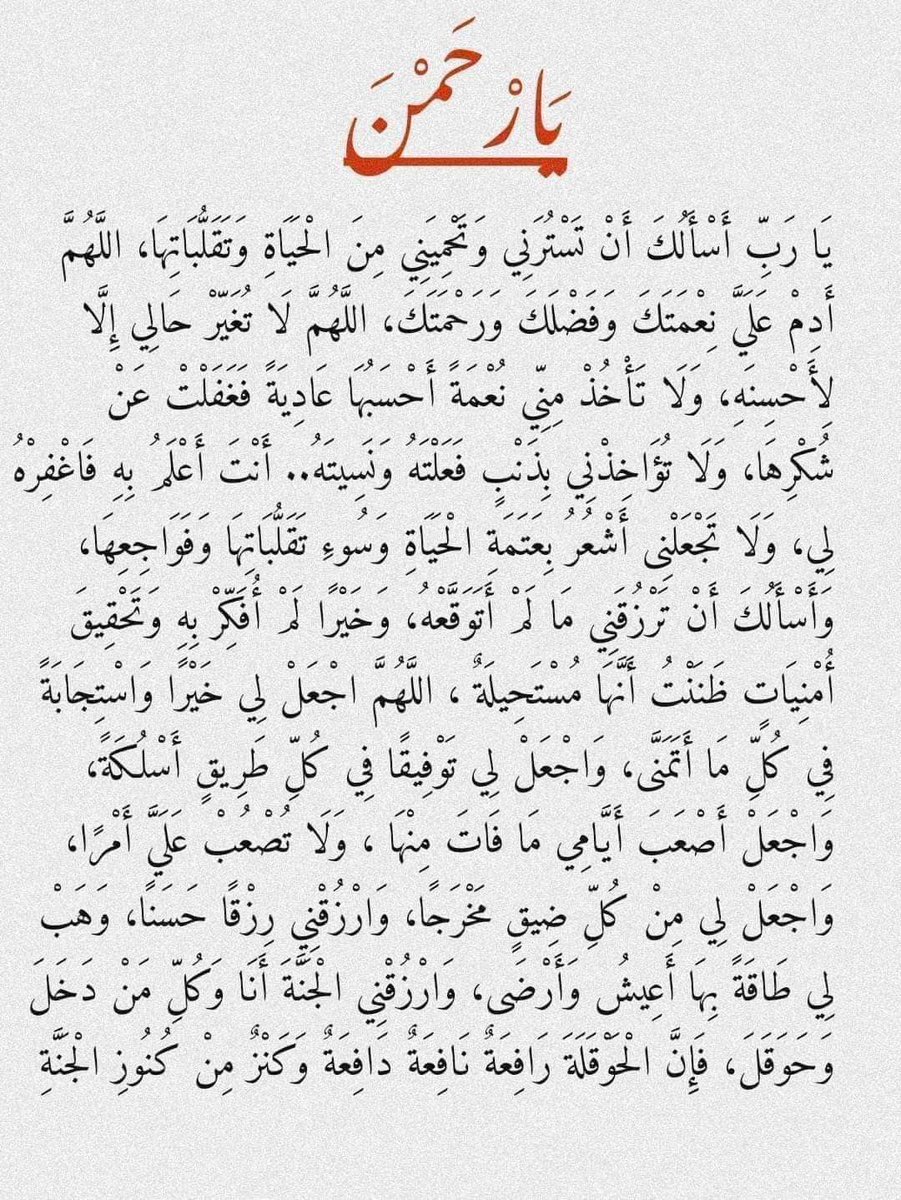 يَارْحَمْنَ
يَا رَبِّ أَسْأَلُكَ أَنْ تَسْتُرَنِي وَتَحْمِيَنِي مِنَ الْحَيَاةِ وَتَقَلُّبَاتِهَا، اللَّهُمَّ
أَدِمْ عَلَيَّ نِعْمَتَكَ وَفَضْلَكَ وَرَحْمَتَكَ، اللَّهُمَّ لَا تُغَيّرْ حَالِي إِلَّا
لِأَحْسِنَهِ، وَلَا تَأْخُذْ مِنِّي نُعْمَةً أَحْسَبُهَا عَادِيَةً فَغَفَلْتْ عَنْ
شُكْرِهَا، وَلَا تُؤَاخِذْنِي بِذَنْبٍ فَعَلْتَهُ وَنَسِيتَهُ.. أَنْتَ أَعْلَمُ بِهِ فَاغْفِرْهُ
لِي، وَلَا تَجْعَلْنِي أَشْعُرُ بِعَتَمَةِ الْحَيَاةِ وَسُوءِ تَقَلُّبَاتِهَا وَفَوَاجِعِهَا،
وَأَسْأَلُكَ أَنْ تَرْزُقَنِي مَا لَمْ أَتَوَقَّعْهُ، وَخَيْرًا لَمْ أُفَكِّرْ بِهِ وَتَحْقِيقَ
أُمْنِيَاتٍ ظَنَنْتُ أَنَّهَا مُسْتَحِيلَةٌ ، اللَّهُمَّ اجْعَلْ لِي خَيْرًا وَاسْتِجَابَةً
فِي كُلِّ مَا أَتَمَنَّى، وَاجْعَلْ لِي تَوْفِيقًا فِي كُلِّ طَرِيقٍ أَسْلُكَةً،
وَاجْعَلْ أَصْعَبَ أَيَّامِي مَا فَاتَ مِنْهَا ، وَلَا تُصْعُبْ عَلَيَّ أَمْرًا،
وَاجْعَلْ لِي مِنْ كُلِّ ضِيقٍ مَخْرَجًا، وَارْزُقْنِي رِزْقًا حَسَنًا، وَهَبْ
لِي طَاقَةً بِهَا أَعِيشُ وَأَرْضَى، وَارْزُقْنِي الْجَنَّةَ أَنَا وَكُلِّ مَنْ دَخَلَ
وَحَوَقَلَ، فَإِنَّ الْحَوْقَلَةَ رَافِعَةٌ نَافِعَةٌ دَافِعَةٌ وَكَنْزٌ مِنْ كُنُوزِ الْجَنَّةِ